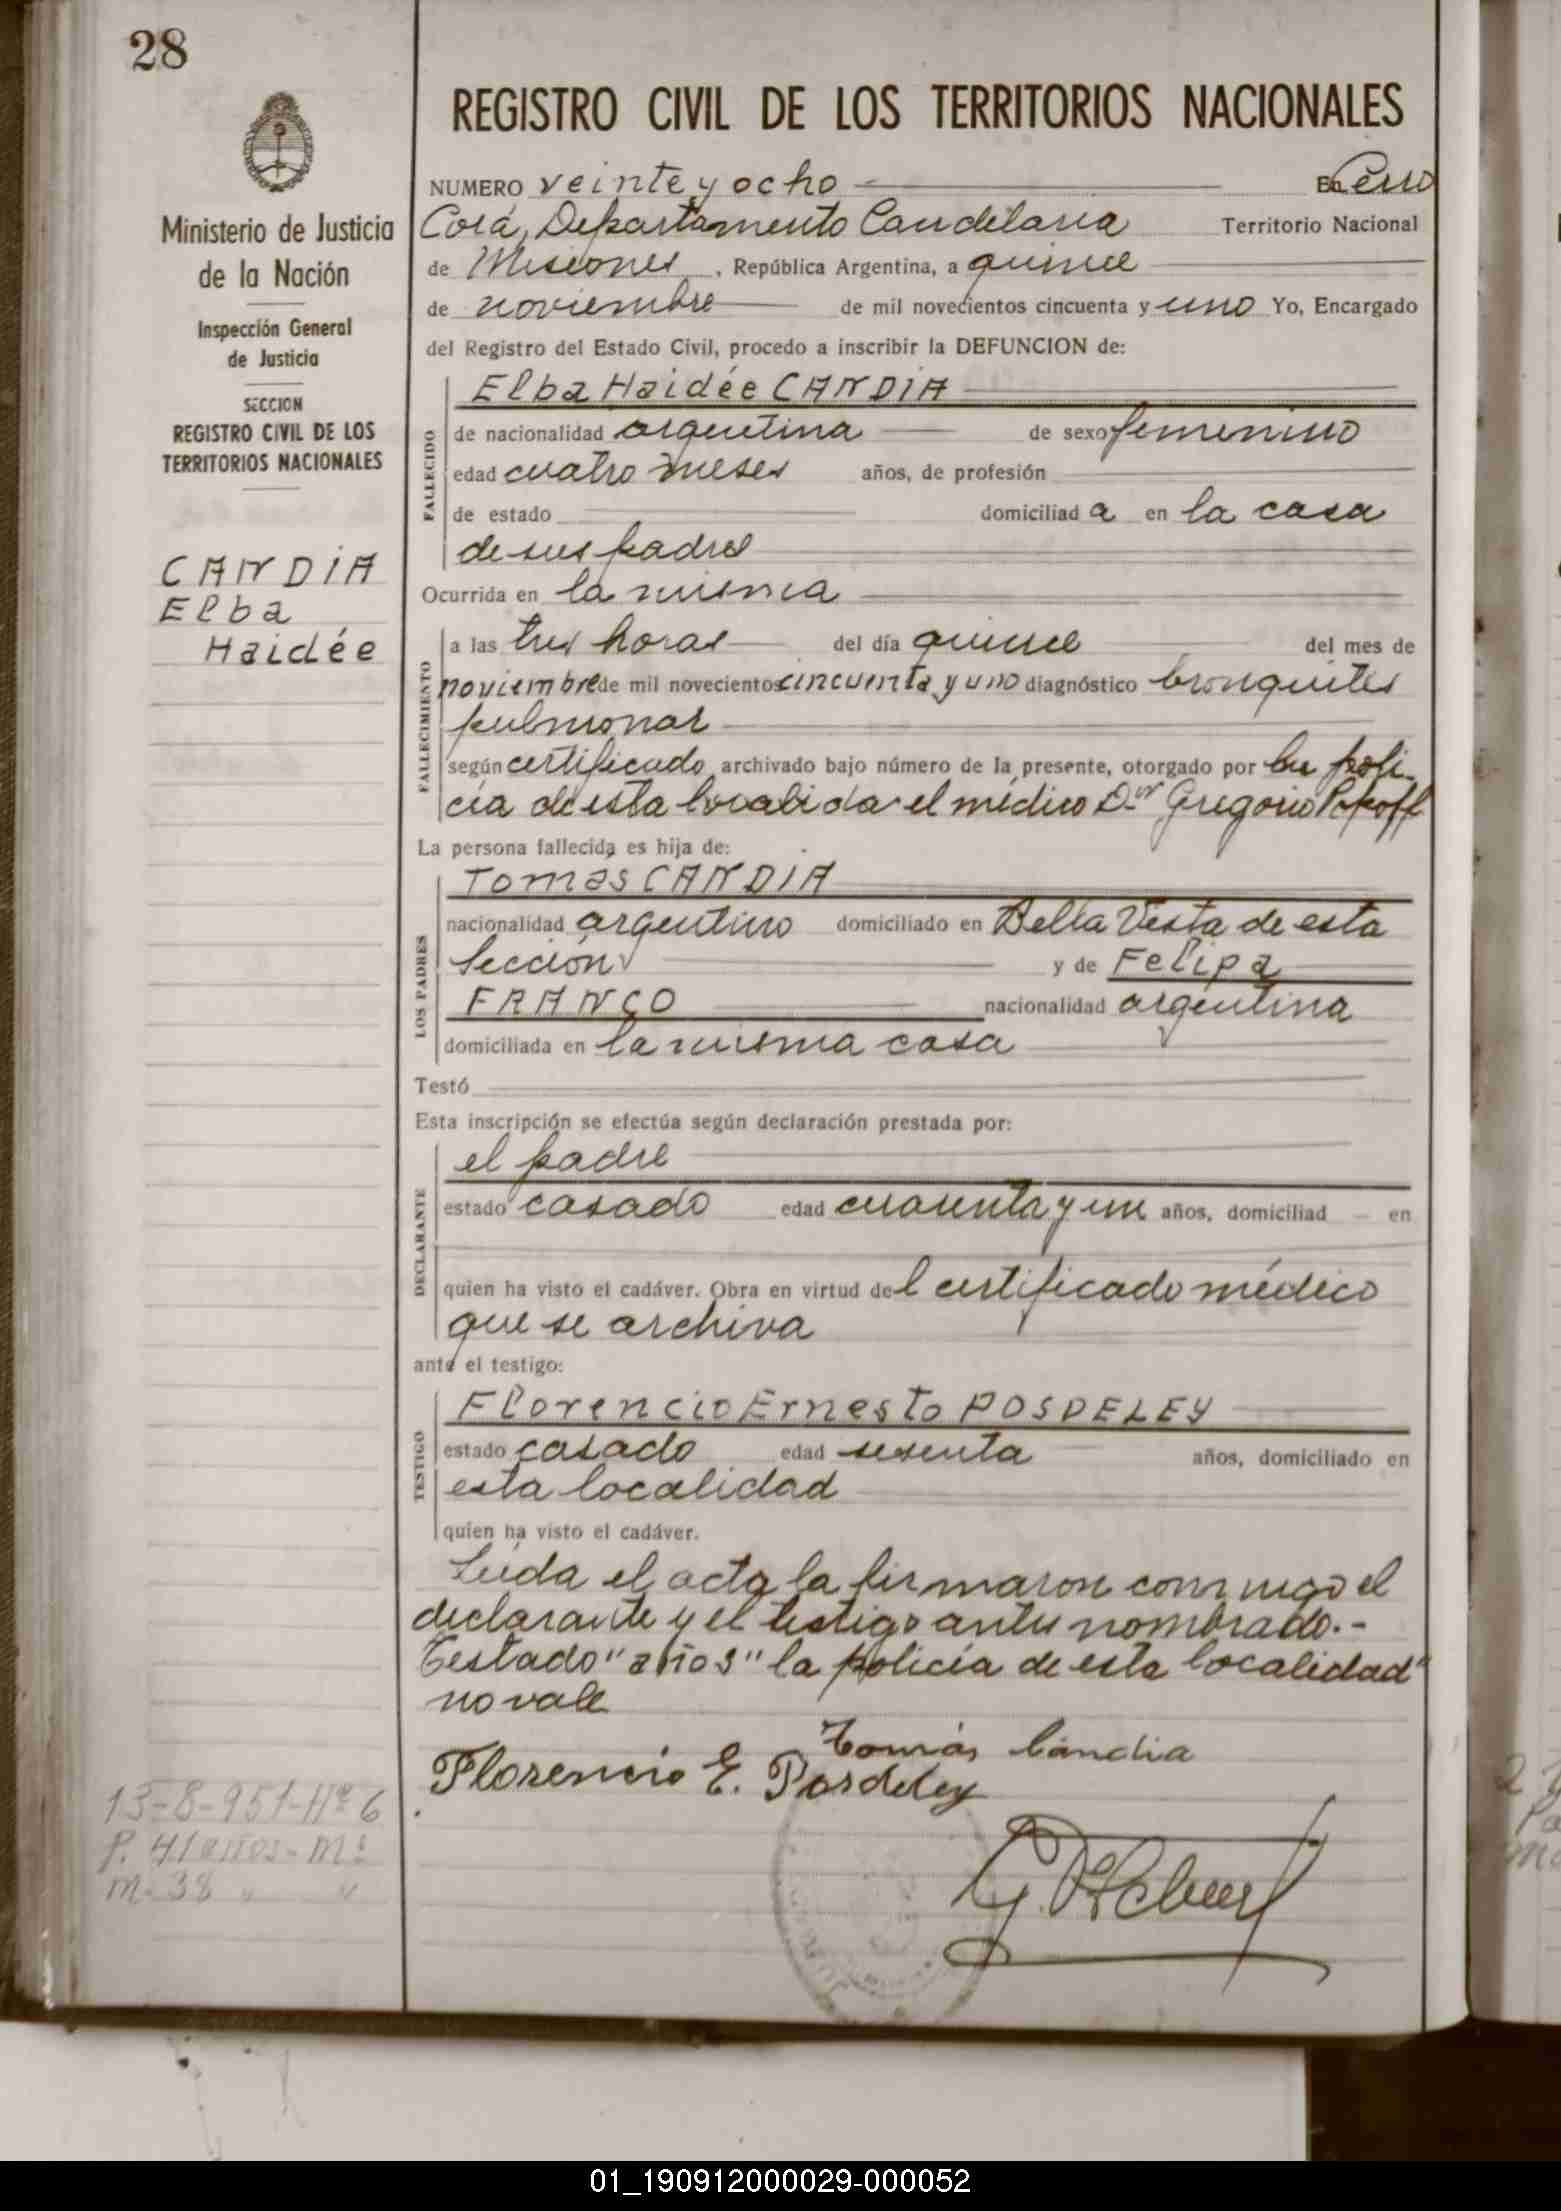 28
REGISTRO CIVIL DE LOS TERRITORIOS NACIONALES
Ministerio de Justicia
de la Nación
Inspección General
de Justicia
SECCION
REGISTRO CIVIL DE LOS
TERRITORIOS NACIONALES
CANDIA
Elba
Haidée
NUMERO veinte y ocho En Cerro
Corá, Departamento Candelaria Territorio Nacional
de Misiones, República Argentina, a quince
de noviembre de mil novecientos cincuenta y uno Yo, Encargado
del Registro del Estado Civil, procedo a inscribir la DEFUNCION de:
FALLECIDO
Elba Haidée CANDIA
de nacionalidad argentina de sexo femenino
edad cuatro meses años, de profesión
de estado domiciliad a en la casa
de sus padres
Ocurrida en la misma
FALLECIMIENTO
a las tres horas del día quince del mes de
noviembre de mil novecientos cincuenta y uno diagnóstico bronquites
pulmonar
según certificado archivado bajo número de la presente, otorgado por la poli-
cía de esta localida el médico Dor Gregorio Popoff
La persona fallecida es hija de:
LOS PADRES
Tomás CANDIA
nacionalidad argentino domiciliado en Bella Vista de esta
Sección y de Felipa
FRANCO nacionalidad argentina
domiciliada en la misma casa
Testó
Esta inscripción se efectúa según declaración prestada por:
DECLARANTE
el padre
estado casado edad cuarenta y un años, domiciliad en
quien ha visto el cadáver. Obra en virtud del certificado médico
que se archiva
ante el testigo:
TESTIGO
Florencio Ernesto POSDELEY
estado casado edad sesenta años, domiciliado en
esta localidad
quien ha visto el cadáver.
Leida el acta la firmaron conmigo el
declarante y el testigo antes nombrado.-
Testado "años" "la policía de esta localidad"
no vale
Tomás Candia
Florencio E. Posdeley
13-8-951-Nº 6
P. 41 años - Ms
M. 38 " "
01_190912000029-000052